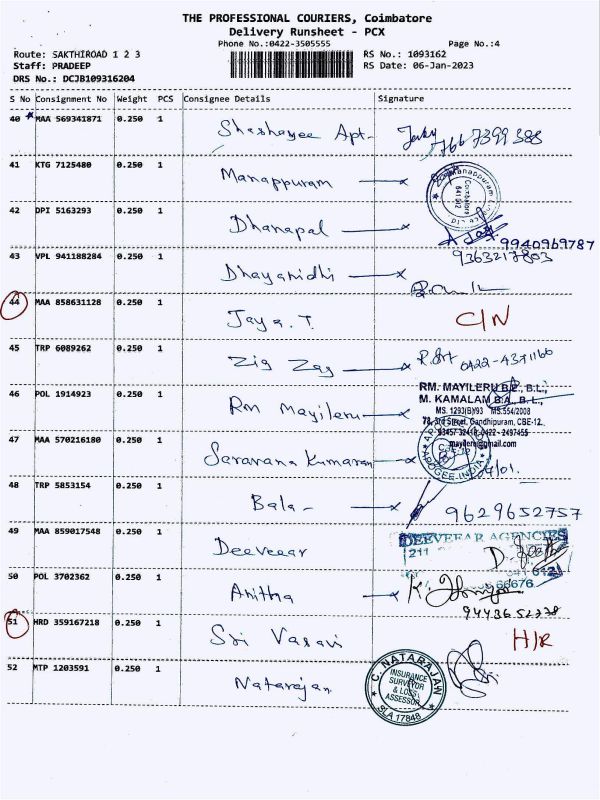 THE PROFESSIONAL COURIERS, Coimbatore
Delivery Runsheet - PCX
Phone No.:0422-3505555 Page No.:4
Route: SAKTHIROAD 1 2 3 RS No.: 1093162
Staff: PRADEEP RS Date: 06-Jan-2023
DRS No.: DCJB109316204
S No Consignment No Weight PCS Consignee Details Signature
40 * MAA 569341871 0.250 1 Shashayee Apt- 7667399388
41 KTG 7125480 0.250 1 Manappuram
42 DPI 5163293 0.250 1 Dhanapal 9940969787
43 VPL 941188284 0.250 1 Dhayanidhi 9363217803
44 MAA 858631128 0.250 1 Jaya. T. C/N
45 TRP 6089262 0.250 1 Zig Zag 0422-4371166
46 POL 1914923 0.250 1 Rm Mayileru
RM. MAYILERU B.E., B.L.,
M. KAMALAM B.A., B.L.,
MS. 1293(B)/93 MS.554/2008
78, 3rd Street, Gandhipuram, CBE-12.
0422-2497455
47 MAA 570216180 0.250 1 Saravana Kumaran
APOGEE-INDIA
CBE-12
48 TRP 5853154 0.250 1 Bala- 9629652757
49 MAA 859017548 0.250 1 Deeveear
DEEVEEAR AGENCIES
211
66676
50 POL 3702362 0.250 1 Anitha 9443652378
51 HRD 359167218 0.250 1 Sri Vasavi H/R
52 MTP 1203591 0.250 1 Natarajan
C. NATARAJAN
INSURANCE
SURVEYOR
& LOSS
ASSESSOR
SLA 17848